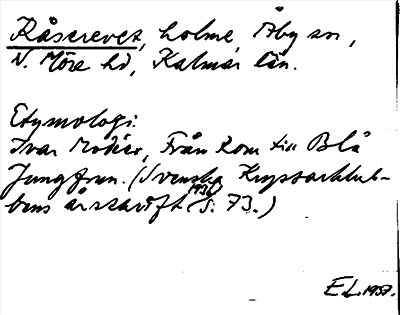 Råserevet, holme, Åby sn,
N. Möre hd, Kalmar län.
Etymologi:
Ivar Modéer, Från Rom till Blå
Jungfrun. (Svenska Kryssarklub-
bens årsskrift 1936 S. 73.)
E.L. 1957.